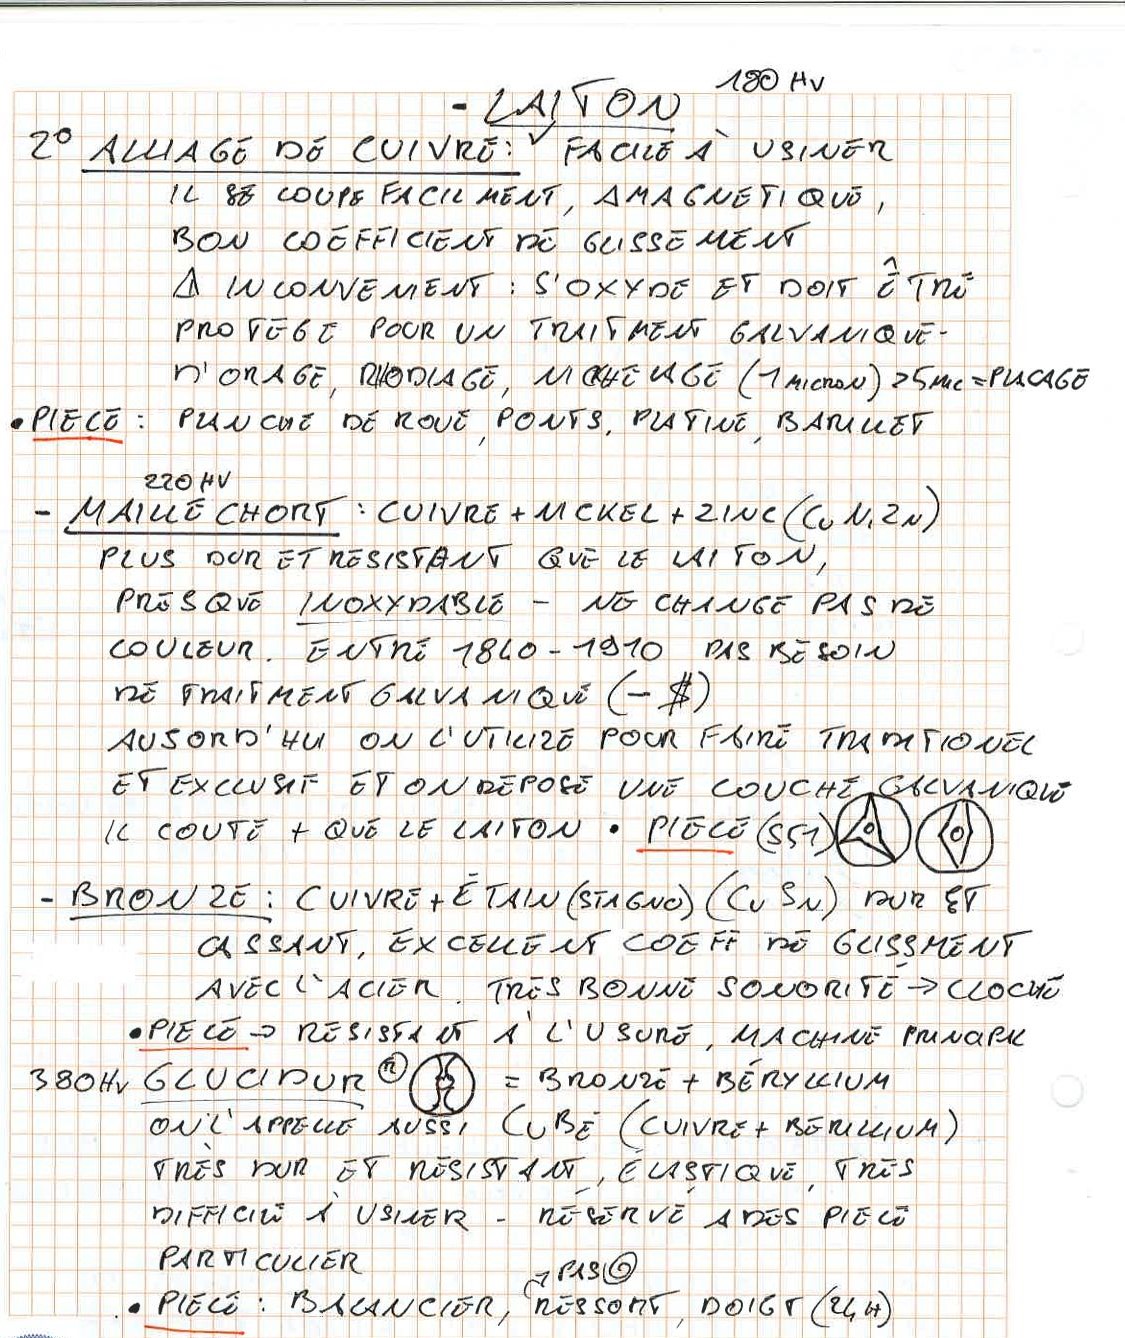 - LAITON 180 HV
2° ALLIAGE DE CUIVRE : FACILE À USINER
IL SE COUPE FACILMENT, AMAGNETIQUE,
BON COEFFICIENT DE GLISSEMENT
Δ INCONVEMENT : S'OXYDE ET DOIT ÊTRE
PROTEGE POUR UN TRAITMENT GALVANIQUE-
D'ORAGE, RHODIAGE, NICHELAGE (1 MICRON) >5 MIC = PLACAGE
• PIECE : PLANCHE DE ROUE, PONTS, PLATINE, BARILLET
220 HV
- MAILLECHORT : CUIVRE + NICKEL + ZINC (Cu Ni ZN)
PLUS DUR ET RESISTANT QUE LE LAITON,
PRESQUE INOXYDABLE - NE CHANGE PAS DE
COULEUR. ENTRE 1840-1910 PAS BESOIN
DE TRAITMENT GALVANIQUE (- $)
AUSORD'HUI ON L'UTILIZE POUR FAIRE TRADITIONEL
ET EXCLUSIF ET ON DEPOSE UNE COUCHE GALVANIQUE
IL COUTE + QUE LE LAITON • PIECE (SS1)
- BRONZE : CUIVRE + ÉTAIN (STAGNO) (Cu SN) DUR ET
CASSANT, EXCELLENT COEFF DE GLISSMENT
AVEC L'ACIER. TRES BONNE SONORITÉ → CLOCHE
• PIECE → RESISTANT À L'USURE, MACHINE
380 HV GLUCIDUR ® = BRONZE + BÉRYLLIUM
ON L'APPELLE AUSSI CuBE (CUIVRE + BERILLIUM)
TRÈS DUR ET RÉSISTANT, ÉLASTIQUE, TRÈS
DIFFICILE À USINER - RÉSERVÉ A DES PIECE
PARTICULIER
→ PAS
• PIECE : BALANCIER, RESSORT, DOIGT (24 H)